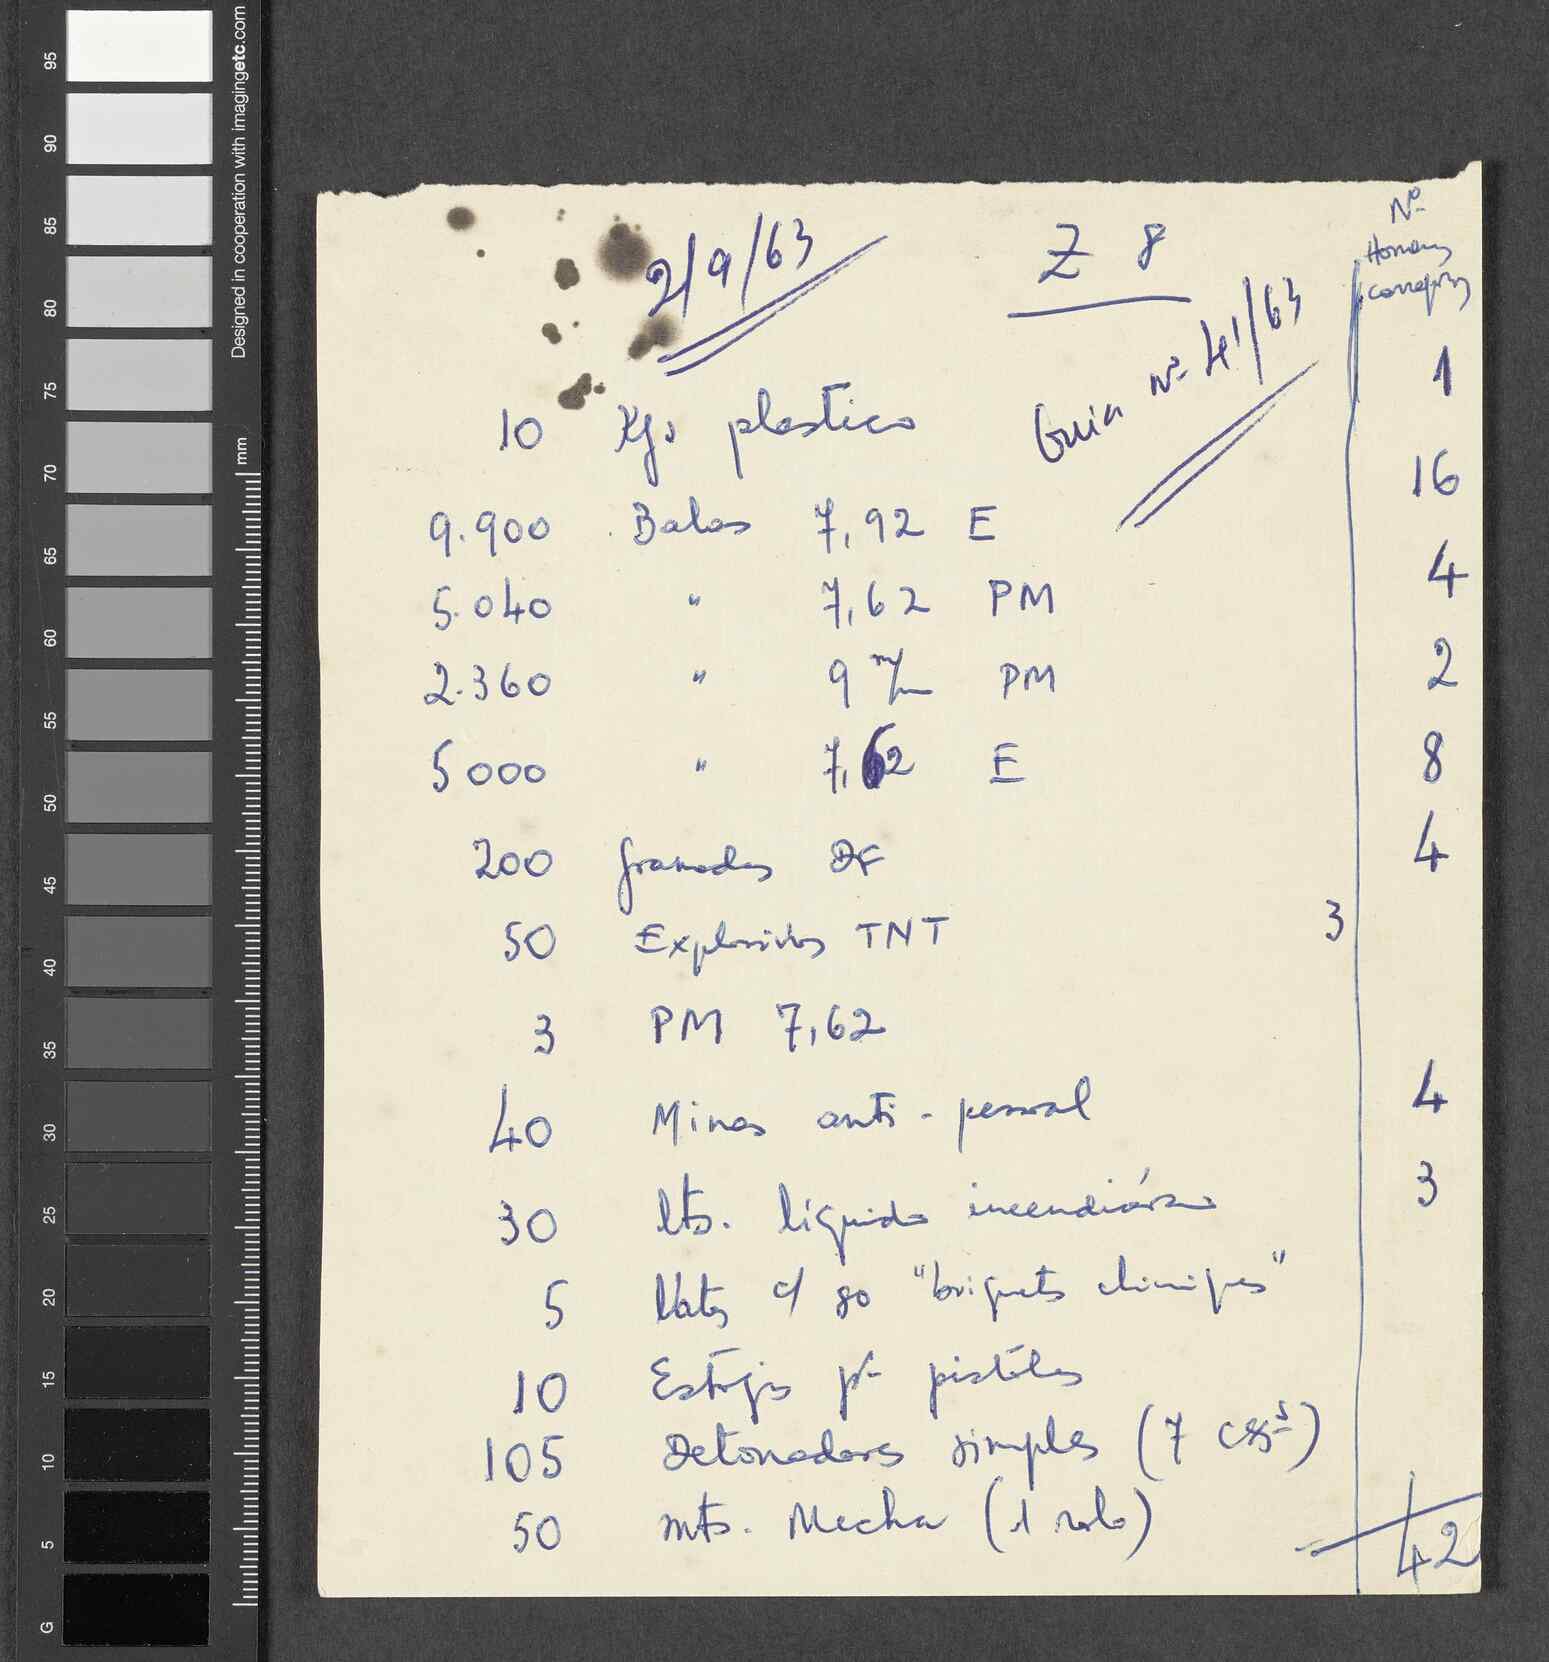 Designed in cooperation with imagingetc.com
mm
95
90
85
80
75
70
65
60
55
50
45
40
35
30
25
20
15
10
5
G
2/9/63
Z 8
Guia Nº 41/63
Nº
Homens
1
10 Kgs plastico
16
9.900 Balas 7,92 E
4
5.040 " 7,62 PM
2
2.360 " 9 m/m PM
8
5000 " 7,62 E
4
200 granadas DF
50 Explosivos TNT 3
3 PM 7,62
4
40 Minas anti-pessoal
3
30 lts. líquido incendiário
5 c/ 80 "briquets chimiques"
10 Estojos pª pistólas
105 Detonadores simples (7 cxsˢ)
50 mts. Mecha (1 rolo)
42